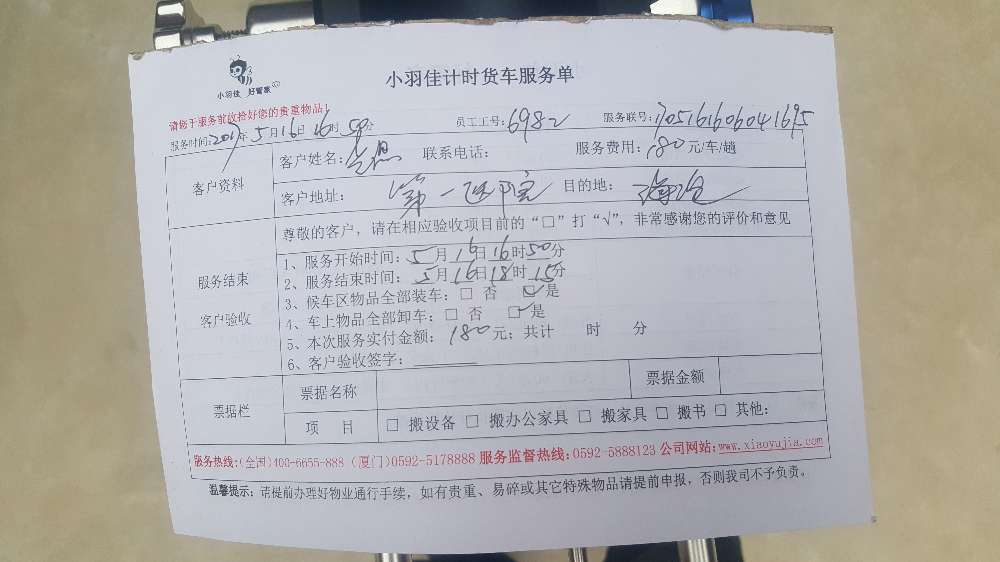 小羽佳 好管家
小羽佳计时货车服务单
请您于服务前放拾好您的贵重物品!
服务时间:2017年5月16日16时50分 员工工号:6982 服务联号:
客户资料
客户姓名: 联系电话: 服务费用:180元/车/趟
客户地址: 第一医院 目的地: 海沧
服务结束
客户验收
尊敬的客户，请在相应验收项目前的“□”打“√”，非常感谢您的评价和意见
1、服务开始时间：5月16日16时50分
2、服务结束时间：5月16日18时15分
3、候车区物品全部装车：□ 否 ☑是
4、车上物品全部卸车：□ 否 ☑是
5、本次服务实付金额：180元；共计 时 分
6、客户验收签字：
票据栏
票据名称 票据金额
项 目 □ 搬设备 □ 搬办公家具 □ 搬家具 □ 搬书 □ 其他：
服务热线:(全国)400-6655-888 (厦门)0592-5178888 服务监督热线:0592-5888123 公司网站:www.xiaoyujia.com
温馨提示：请提前办理好物业通行手续，如有贵重、易碎或其它特殊物品请提前申报，否则我司不予负责。